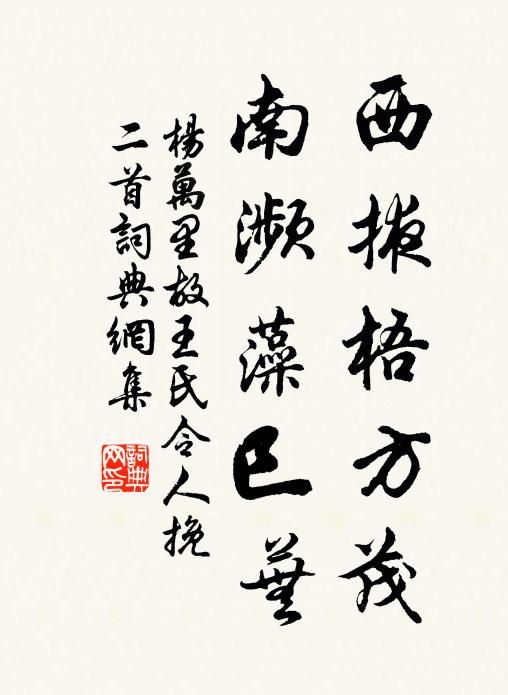 西掖梧方茂
南瀕藻已蕪
楊萬里故王氏令人挽
二首詞典網集
詞典
网印